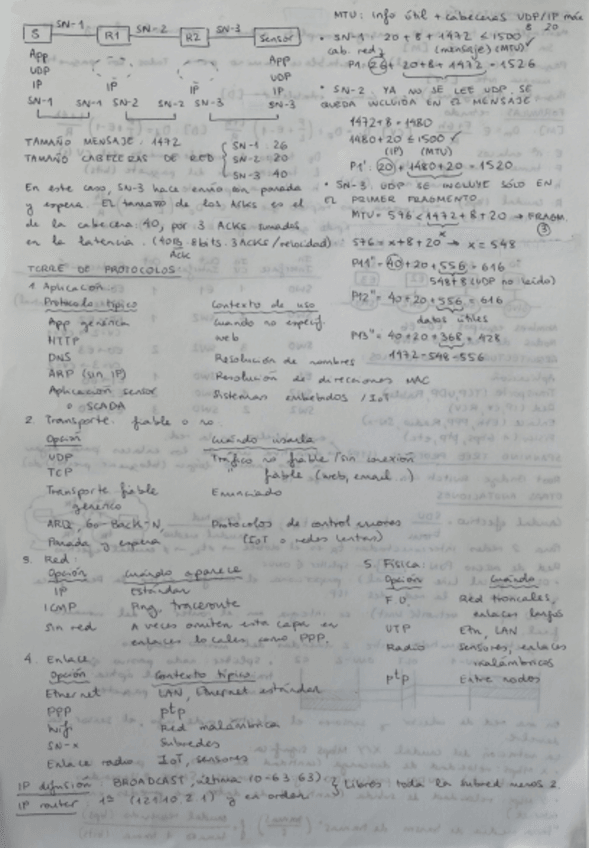 SN-1 SN-2 SN-3
S R1 R2 Sensor
App App
UDP UDP
IP IP IP IP
SN-1 SN-1 SN-2 SN-2 SN-3 SN-3
TAMAÑO MENSAJE: 1472
TAMAÑO CABECERAS DE RED
SN-1: 26
SN-2: 20
SN-3: 40
En este caso, SN-3 hace envío con parada
y espera. El tamaño de los ACKs es el
de la cabecera: 40, por 3 ACKs sumados
en la latencia. (40B · 8bits · 3ACKS/velocidad)
Ack
MTU: info útil + cabeceras UDP/IP máx
8 20
• SN-1: 20 + 8 + 1472 ≤ 1500 ✓
cab. red (mensaje) (MTU)
P1: 26 + 20+8+1472 = 1526
• SN-2 YA NO SE LEE UDP, SE
QUEDA INCLUIDA EN EL MENSAJE
1472+8 = 1480
1480+20 ≤ 1500 ✓
(IP) (MTU)
P1': 20 + 1480+20 = 1520
• SN-3 UDP SE INCLUYE SÓLO EN
EL PRIMER FRAGMENTO
MTU = 576 < 1472 + 8 + 20 → FRAGM.
x 3
576 = x+8+20 → x = 548
P11'' = 40 + 20 + 556 = 616
548+8 (UDP no leído)
P12'' = 40 + 20 + 556 = 616
datos útiles
P13'' = 40 + 20 + 368 = 428
1472 - 548 - 556
TORRE DE PROTOCOLOS
1. Aplicación
Protocolo típico Contexto de uso
App genérica Cuando no especif.
HTTP web
DNS Resolución de nombres
ARP (sin IP) Resolución de direcciones MAC
Aplicación sensor Sistemas embebidos / IoT
o SCADA
2. Transporte: fiable o no
Opción Cuándo usarla
UDP Tráfico no fiable / sin conexión
TCP " fiable (web, email..)
Transporte fiable Enunciado
genérico
ARQ, Go-Back-N, Protocolos de control errores
Parada y espera (IoT o redes lentas)
3. Red:
Opción Cuándo aparece
IP Estándar
ICMP Ping, traceroute
Sin red A veces omiten esta capa en
enlaces locales, como PPP.
4. Enlace
Opción Contexto típico
Ethernet LAN, Ethernet estándar
PPP ptp
Wifi Red inalámbrica
SN-x Subredes
Enlace radio IoT, sensores
5. Física:
Opción Cuándo
F.O. Red troncales,
enlaces largos
UTP Eth, LAN
Radio Sensores, enlaces
inalámbricos
ptp Entre nodos
IP difusión BROADCAST, última (0-63 63) Libres: toda la subred menos 2
IP router 1ª (121.10.2.1) y en orden